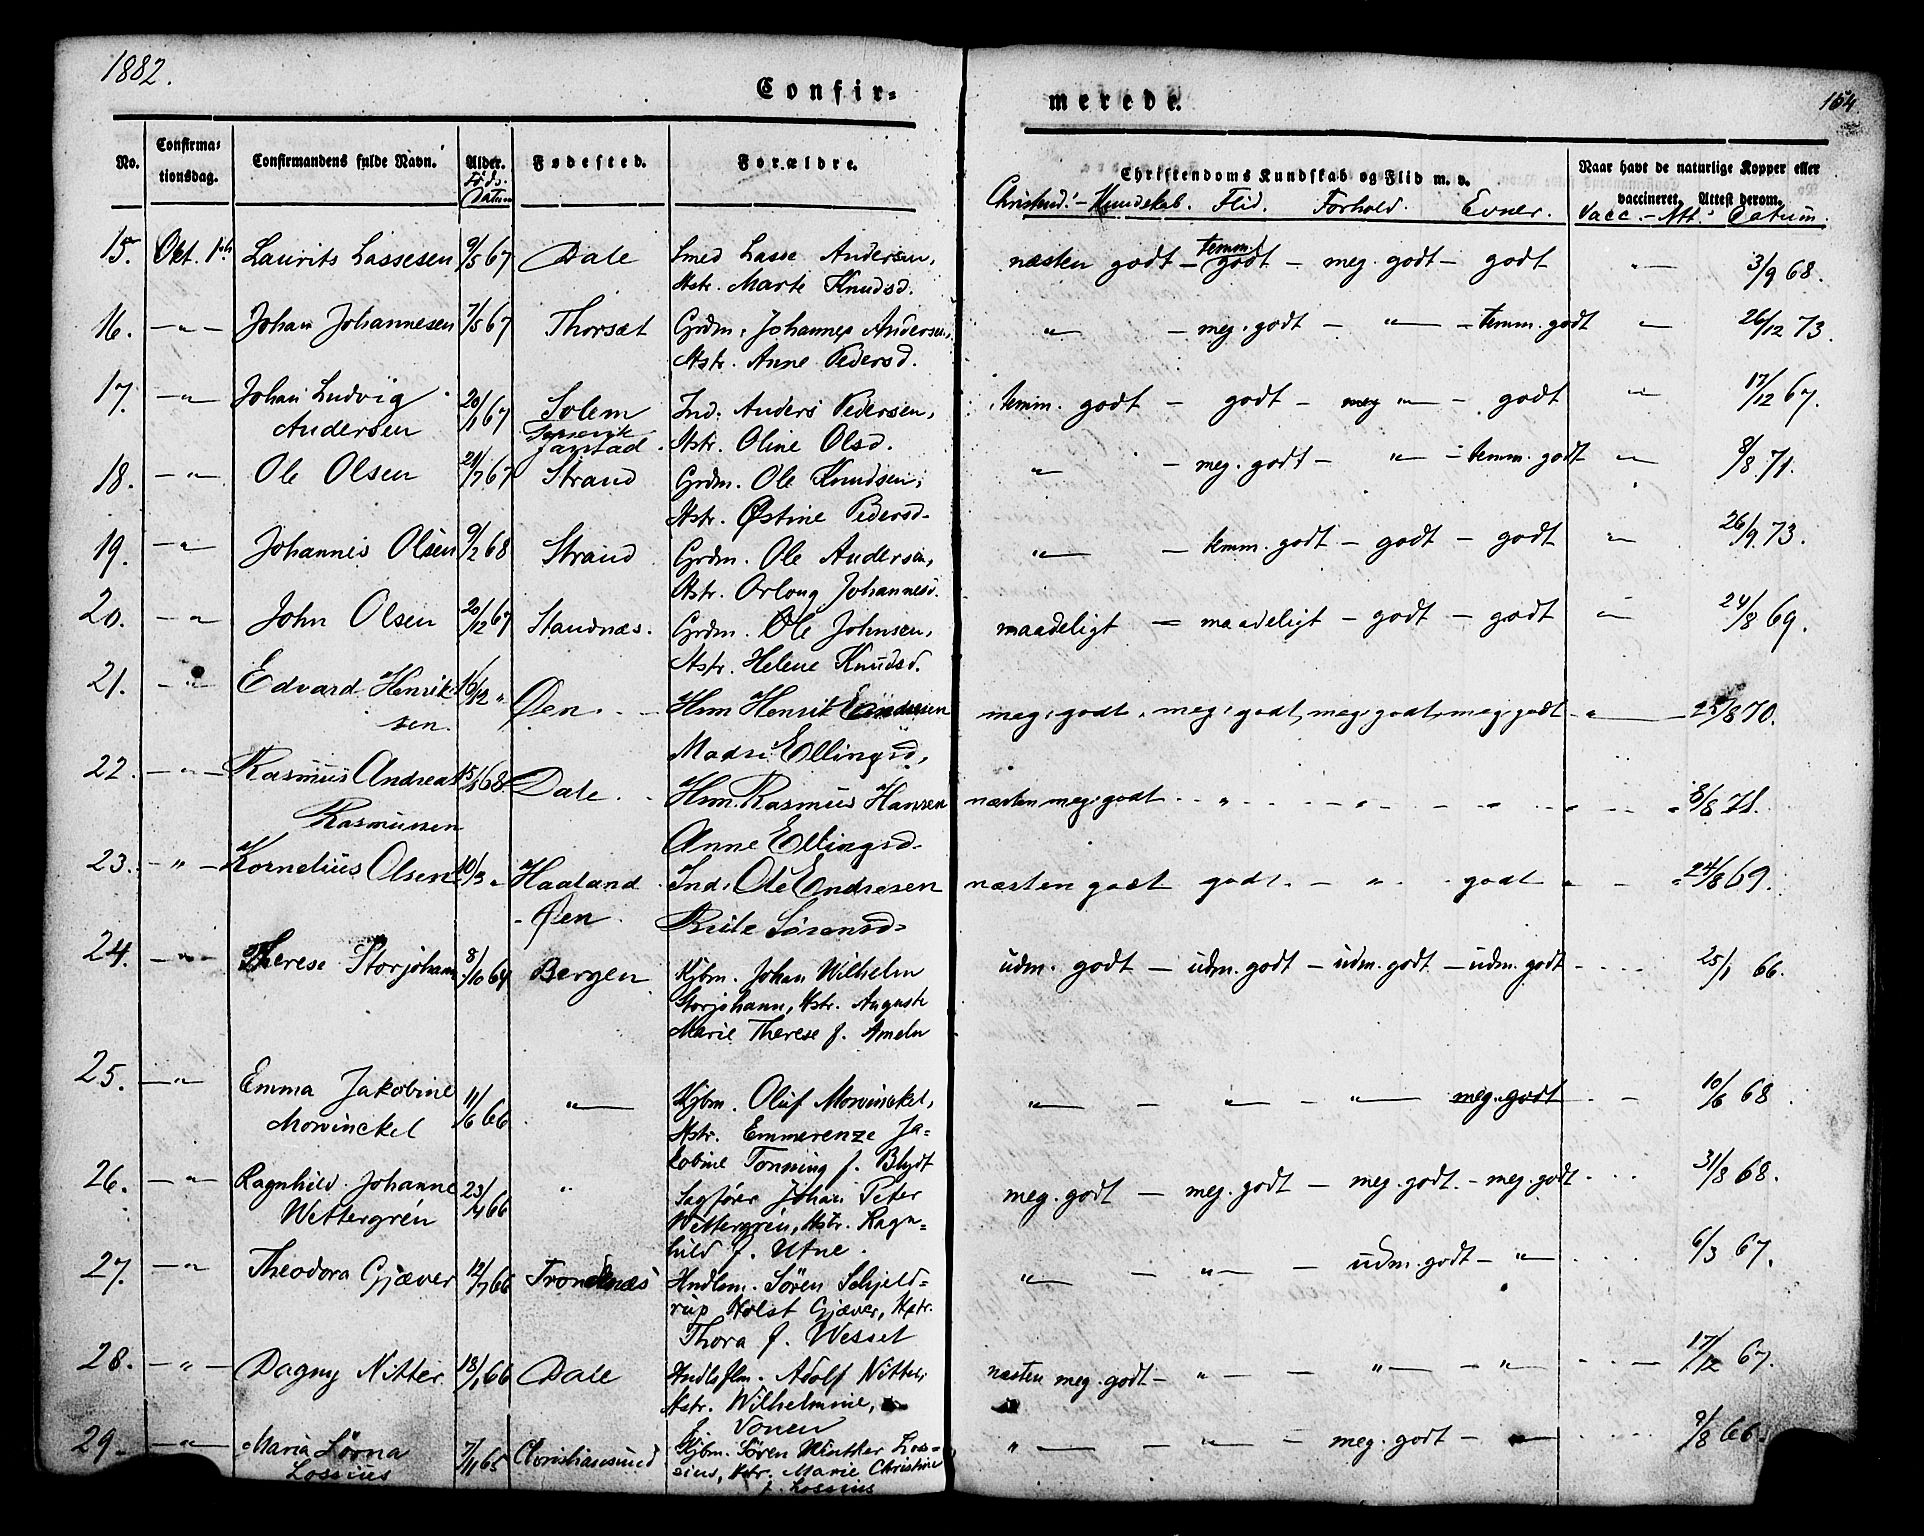 1882.
Confir-
merede.
154
No.
Confirma-
tionsdag.
Confirmandens fulde Navn.
Alder.
Føds.
Datum
Fødested.
Forældre.
Christendoms Kundskab og Flid m. v.
Christend.- Kundskab. Flid. Forhold. Evner.
Naar havt de naturlige Kopper eller
vaccineret. Attest derom.
Vacc. - Att. Datum.
15. Okt. 1ste Laurits Lassesen 9/5 67 Dale Smed Lasse Andersen, næsten godt - temm. godt - meg. godt - godt " 3/9 68.
Hstr. Marte Knudsd.
16. " Johan Johannesen 7/5 67 Thorsæt Grdm. Johannes Andersen, " - meg. godt - " - temm. godt " 26/12 73.
Hstr. Anne Pedersd.
17. " Johan Ludvig 20/1 67 Solem Ind. Anders Pedersen, temm. godt - godt - meg " - godt " 17/12 67.
Andersen Jarstad. Hstr. Oline Olsd.
18. " Ole Olsen 24/7 67 Strand Grdm. Ole Knudsen, " - meg. godt - " - temm. godt " 8/8 71.
Hstr. Østine Pedersd.
19. " Johannes Olsen 9/2 68 Strand Grdm. Ole Andersen, " - temm. godt - godt - godt " 26/9 73.
Hstr. Orloug Johannesd.
20. " John Olsen 20/12 67 Standnæs. Grdm. Ole Johnsen, maadeligt - maadeligt - godt - godt " 24/8 69.
Hstr. Helene Knudsd.
21. " Edvard Henrik- 16/12 " Øen. Hsm Henrik Endresen meg. godt, meg. godt, meg. godt, meg. godt " 25/8 70.
sen. Madsi Ellingsd,
22. " Rasmus Andreas 15/ 68. Dale. Hsm. Rasmus Hansen næsten meg. godt " " " " 8/8 71.
Rasmussen Anne Ellingsd.
23. " Kornelius Olsen 10/3 " Haaland Ind. Ole Endresen næsten godt godt. - " godt " 24/8 69.
- Øen. Brite Sørensd.
24. " Therese Storjohann 8/10 64 Bergen Kjbm. Johan Wilhelm udm. godt - udm. godt - udm. godt - udm. godt 25/1 66.
Storjohann, Hstr. Auguste
Marie Therese f. Ameln
25. " Emma Jakobine 11/6 66 " Kjbm. Oluf Mowinckel, " - " - " meg. godt 10/6 68
Mowinckel Hstr. Emmerenze Ja-
kobine Tonning f. Blydt
26. " Ragnhild Johanne 23/4 66 " Sagfører Johan Peter meg. godt - meg. godt - meg. godt. - meg. godt 31/8 68.
Wettergrén Wettergrén, Hstr. Ragn-
hild f. Utne.
27. " Theodora Gjæver 12/7 66 Trondenæs Hndlsm. Sören Schjeld- " - " - udm. godt - " 6/3 67.
rup Holst Gjæver, Hstr.
Thora f. Wessel
28. " Dagny Nitter 18/1 66 Dale Hndlsflm. Adolf Nitter, næsten meg. godt - " - " - " 17/12 67.
Hstr. Wilhelmine,
f. Vonen
29. " Maria Lorna 7/11 65 Christiansund Kjbm. Sören Los- " - " - meg. godt - 9/8 66.
Lossius sius, Hstr. Marie Christine
f. Lossius